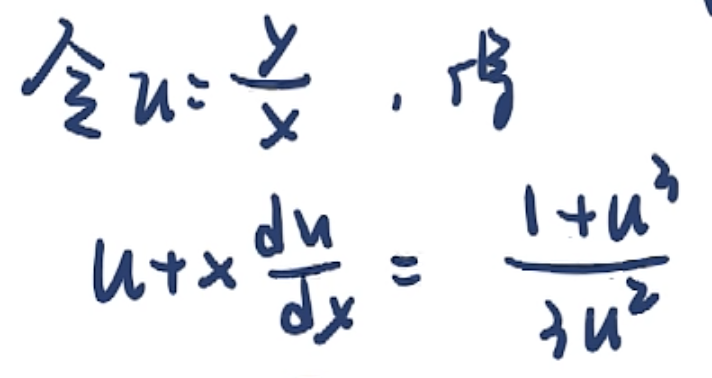 令 u = y/x , 得
u + x du/dx = (1+u³)/(3u²)